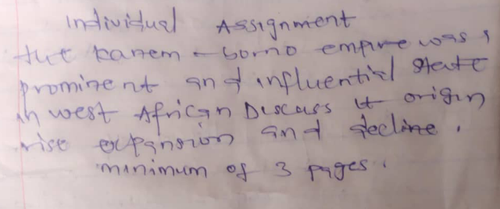 Individual Assignment
the Kanem - borno empire was a
prominent and influential state
in west African Discuss it origin
rise expansion and decline.
minimum of 3 pages.